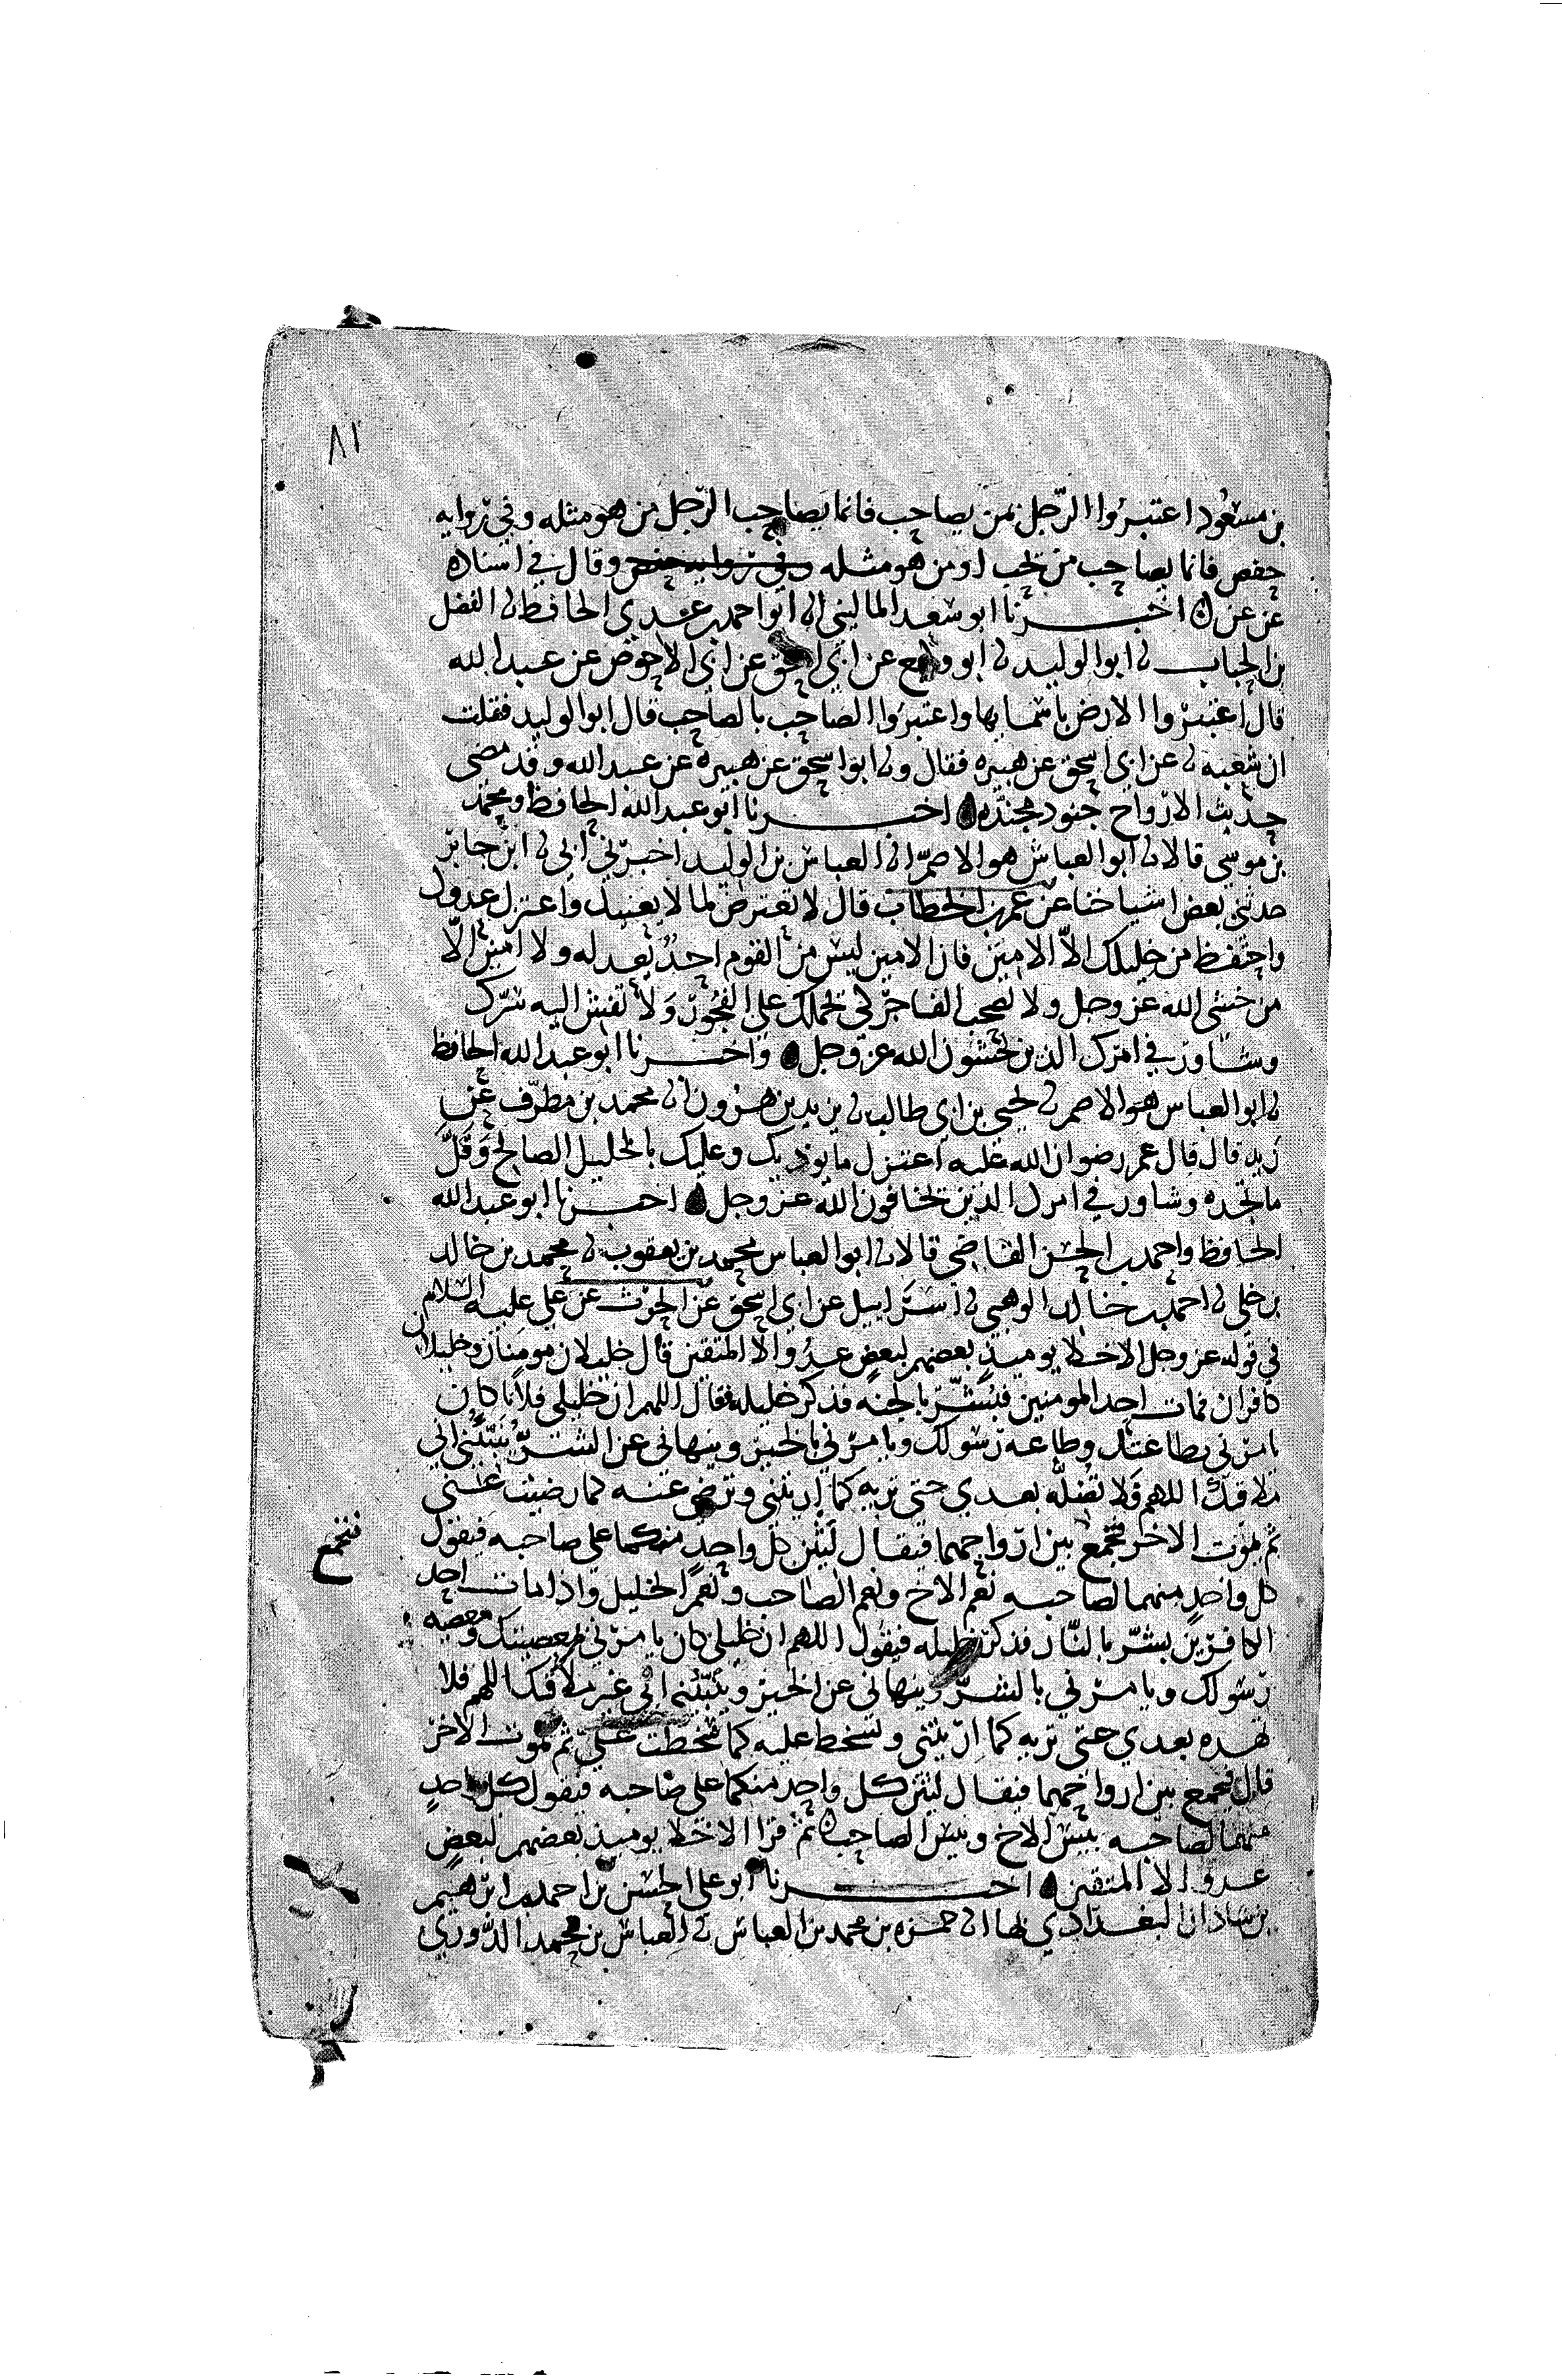 ٨١
بن مسعود اعتبروا الرجل بمن يصاحب فانما يصاحب الرجل من هو مثله وفي روايه
حفص فانما يصاحب من يحب او من هو مثله وفي روايه حفص وقال في اسناده
عن عن اخبرنا ابو سعد الماليني انا ابو احمد بن عدي الحافظ نا الفضل
بن الحباب نا ابو الوليد نا ابو وكيع عن ابي اسحق عن ابي الاحوص عن عبد الله
قال اعتبروا الارض باسمايها واعتبروا الصاحب بالصاحب قال ابو الوليد فقلت
ان شعبه نا عن ابي اسحق عن هبيره فقال ونا ابو اسحق عن هبيره عن عبد الله وقد مضى
حديث الارواح جنود مجنده اخبرنا ابو عبد الله الحافظ ومحمد
بن موسى قالا نا ابو العباس هو الاصم انا العباس بن الوليد اخبرني ابي نا ابن جابر
حدثني بعض اشياخنا عن عمر بن الخطاب قال لا تعترض لما لا يعنيك واعتزل عدوك
واحتفظ من خليلك الا الامين فان الامين ليس من القوم احد يعدله ولا امين الا
من خشى الله عز وجل ولا تصحب الفاجر كي يحملك على الفجور ولا تفش اليه سرك
وشاور في امرك الذين يخشون الله عز وجل واخبرنا ابو عبد الله الحافظ
نا ابو العباس هو الاصم نا يحيى بن ابي طالب نا يزيد بن هرون انا محمد بن مطرف عن
زيد قال قال عمر رضوان الله عليه اعتزل ما يوذيك وعليك بالخليل الصالح وقل
ما تجده وشاور في امرك الذين يخافون الله عز وجل اخبرنا ابو عبد الله
الحافظ واحمد بن الحسن القاضي قالا نا ابو العباس محمد بن يعقوب نا محمد بن خالد
بن خلي نا احمد بن خالد الوهبي نا اسراييل عن ابي اسحق عن الحرث عن علي عليه السلام
في قوله عز وجل الاخلا يوميذ بعضهم لبعض عدو الا المتقين قال خليلان مومنان وخليلان
كافران فمات احد المومنين فبشر بالجنه فذكر خليله فقال اللهم ان خليلي فلانا كان
يامرني بطاعتك وطاعه رسولك ويامرني بالخير وينهاني عن الشر ينبئني اني
ملاقيك اللهم فلا تضله بعدي حتى تريه كما اريتني وترضى عنه كما رضيت عني
ثم يموت الاخر فيجمع بين ارواحهما فيقال ليثن كل واحد منكما على صاحبه فيقول
فتجمع
كل واحد منهما لصاحبه نعم الاخ ونعم الصاحب ونعم الخليل واذا مات احد
الكافرين بشر بالنار فذكر خليله فيقول اللهم ان خليلي كان يامرني بمعصيتك ومعصيه
رسولك ويامرني بالشر وينهاني عن الخير وينبئني اني غير ملاقيك اللهم فلا
تهده بعدي حتى تريه كما اريتني وتسخط عليه كما سخطت علي ثم يموت الاخر
قال فيجمع بين ارواحهما فيقال ليثن كل واحد منكما على صاحبه فيقول كل واحد
منهما لصاحبه بيس الاخ وبيس الصاحب ثم قرا الاخلا يوميذ بعضهم لبعض
عدو الا المتقين اخبرنا ابو علي الحسن بن احمد بن ابرهيم
بن شاذان البغدادي بها انا حمزه بن محمد بن العباس نا العباس بن محمد الدوري